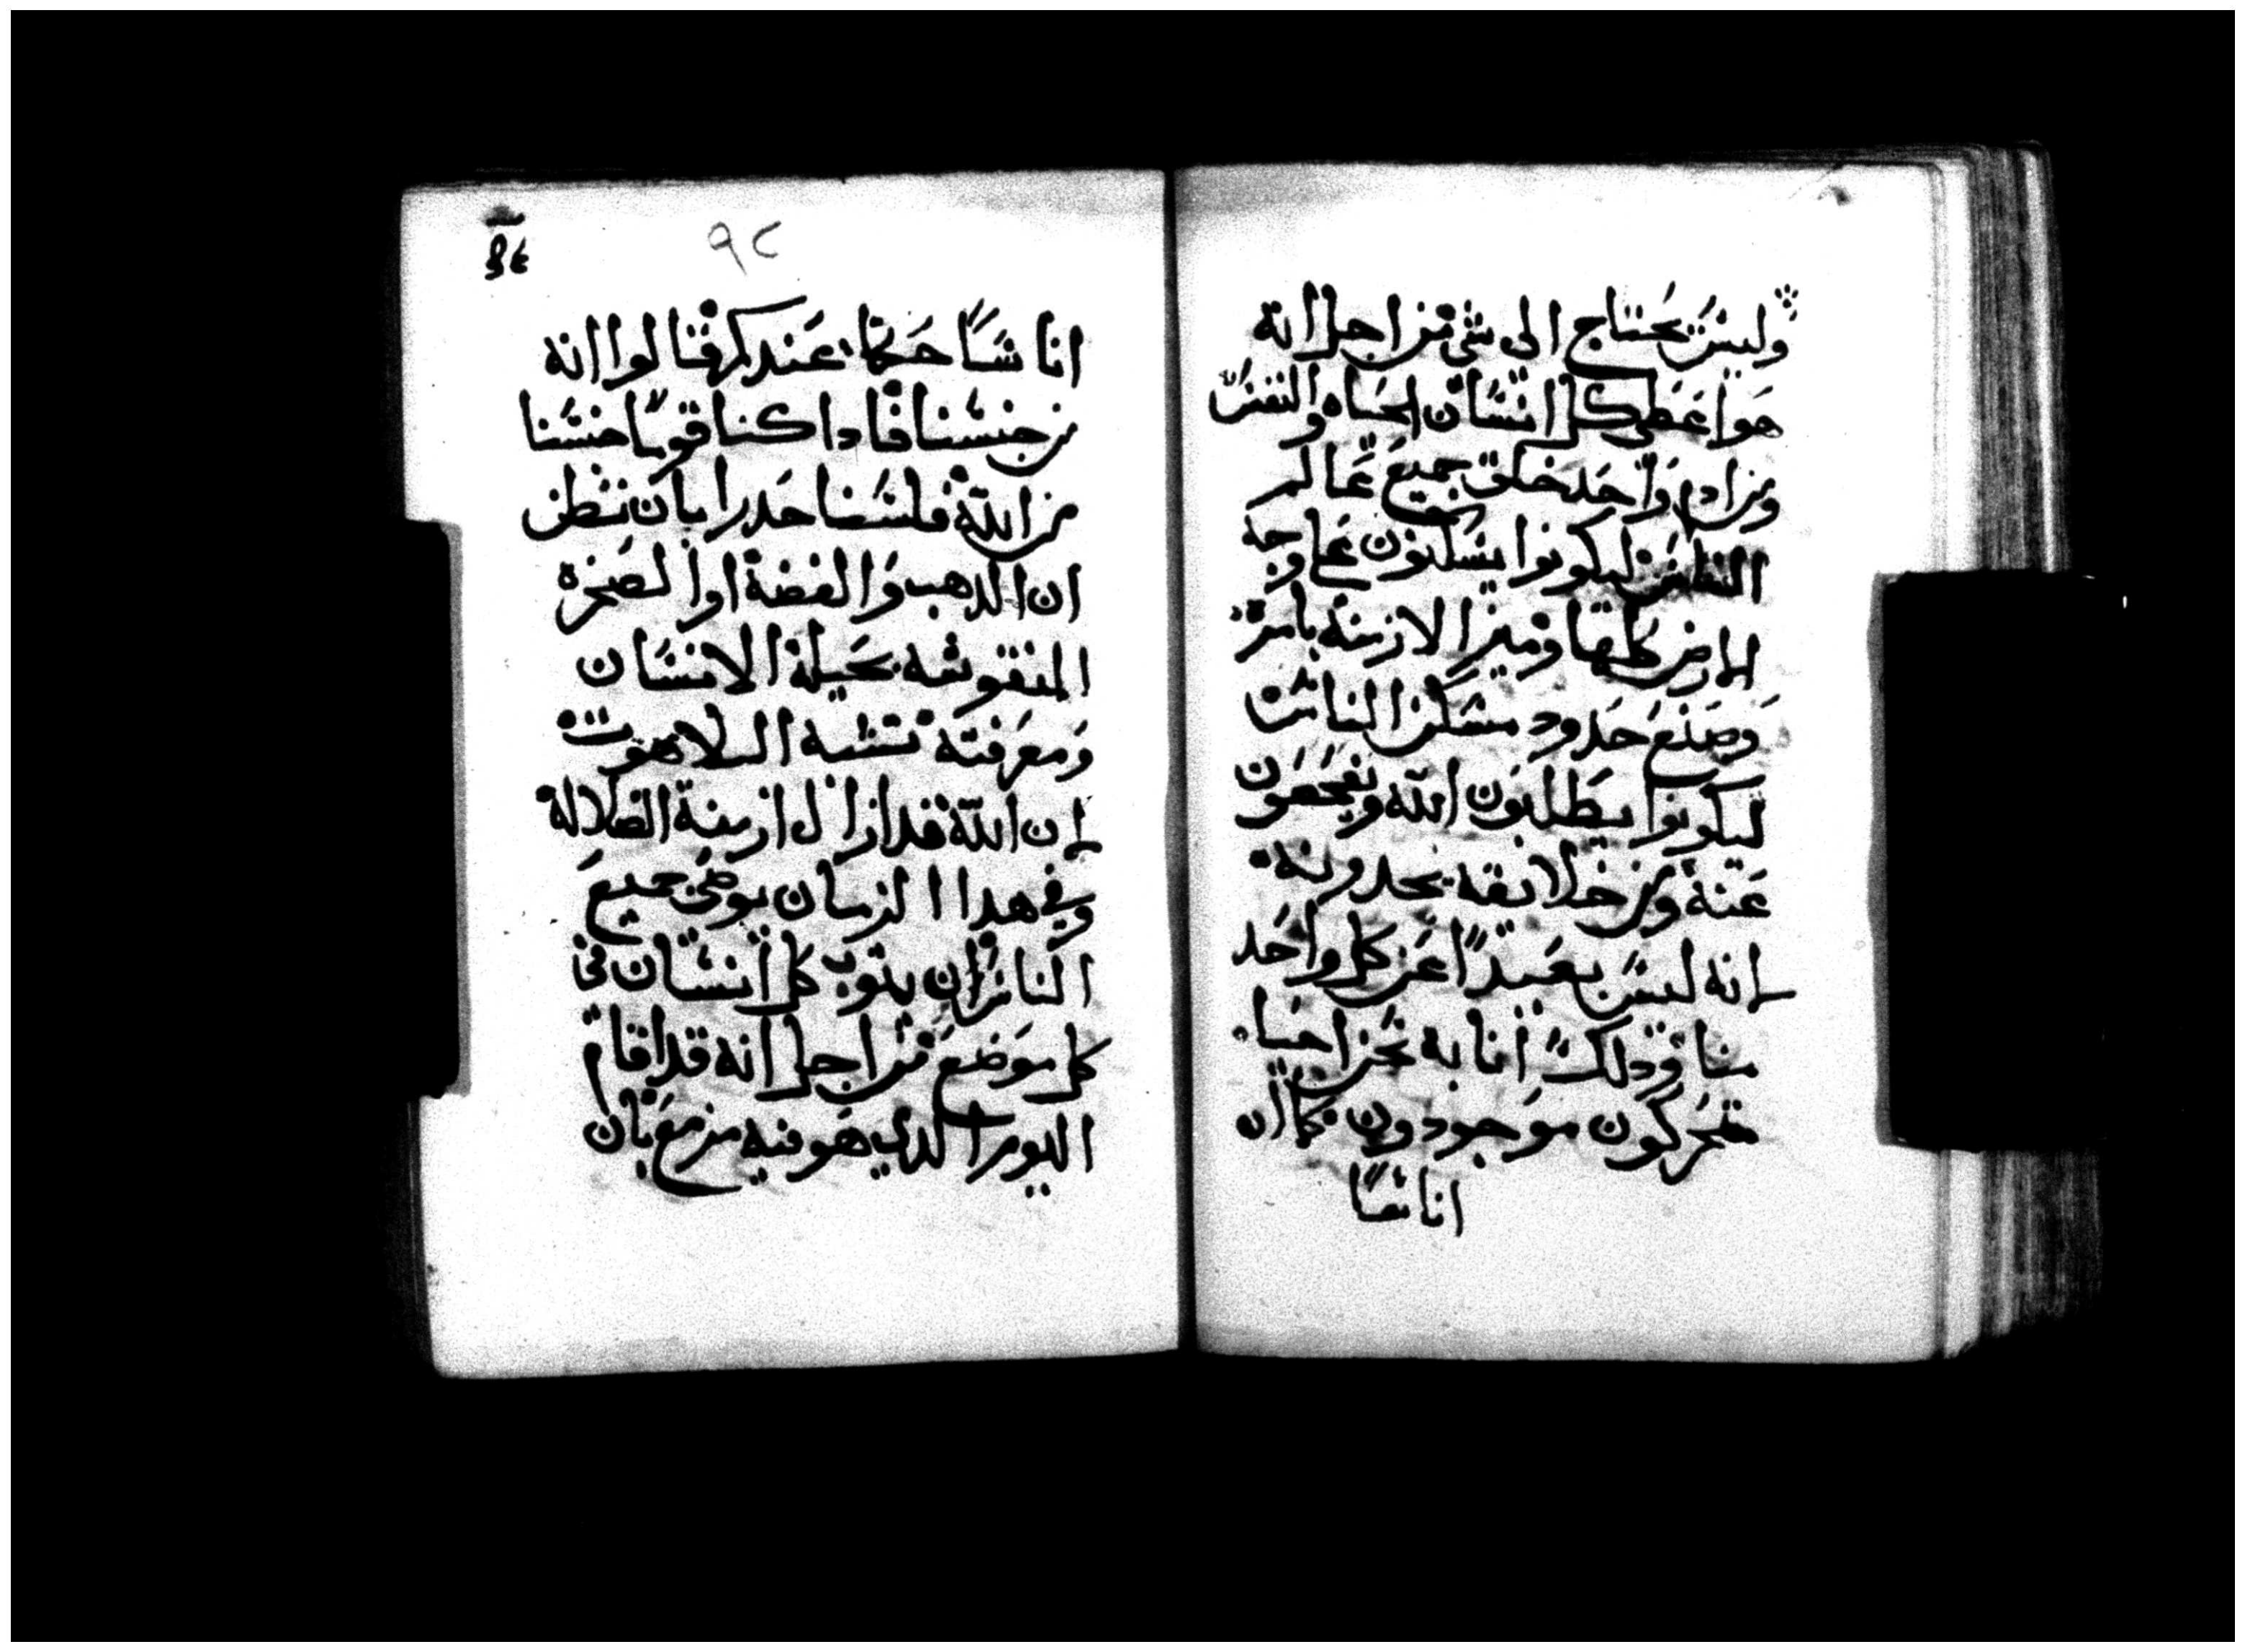 وليس يحتاج الي شي من اجل انه
هو اعطي كل انسان الحياه والنفس
ومن ادم واحد خلق جميع عالم
الناس ليكونوا يسكنون علي وجه
الارض كلها وميز الازمنة بامره
وصنع حدود مسكن الناس
ليكونوا يطلبون الله ويفحصون
عنه ومن خلايقه يجدونه
انه ليس بعيدًا عن كل واحد
منا وذلك اننا به نحن احيا
متحركون موجودون كما ان
اناسًا
٩٢
اناسًا حكما عندكم قالوا انه
من جنسنا فاداكنا قومًا جنسنا
من الله فلسنا حدرا بان نظن
ان الدهب والفضة او الصخره
المنقوشه بحيلة الانسان
ومعرفته تشبه اللاهوت
ان الله قد ازال ازمنة الضلالة
وفي هدا الزمان يوصي جميع
الناس ان يتوب كل انسان في
كل موضع من اجل انه قد اقام
اليوم الدي هو فيه مزمع بان